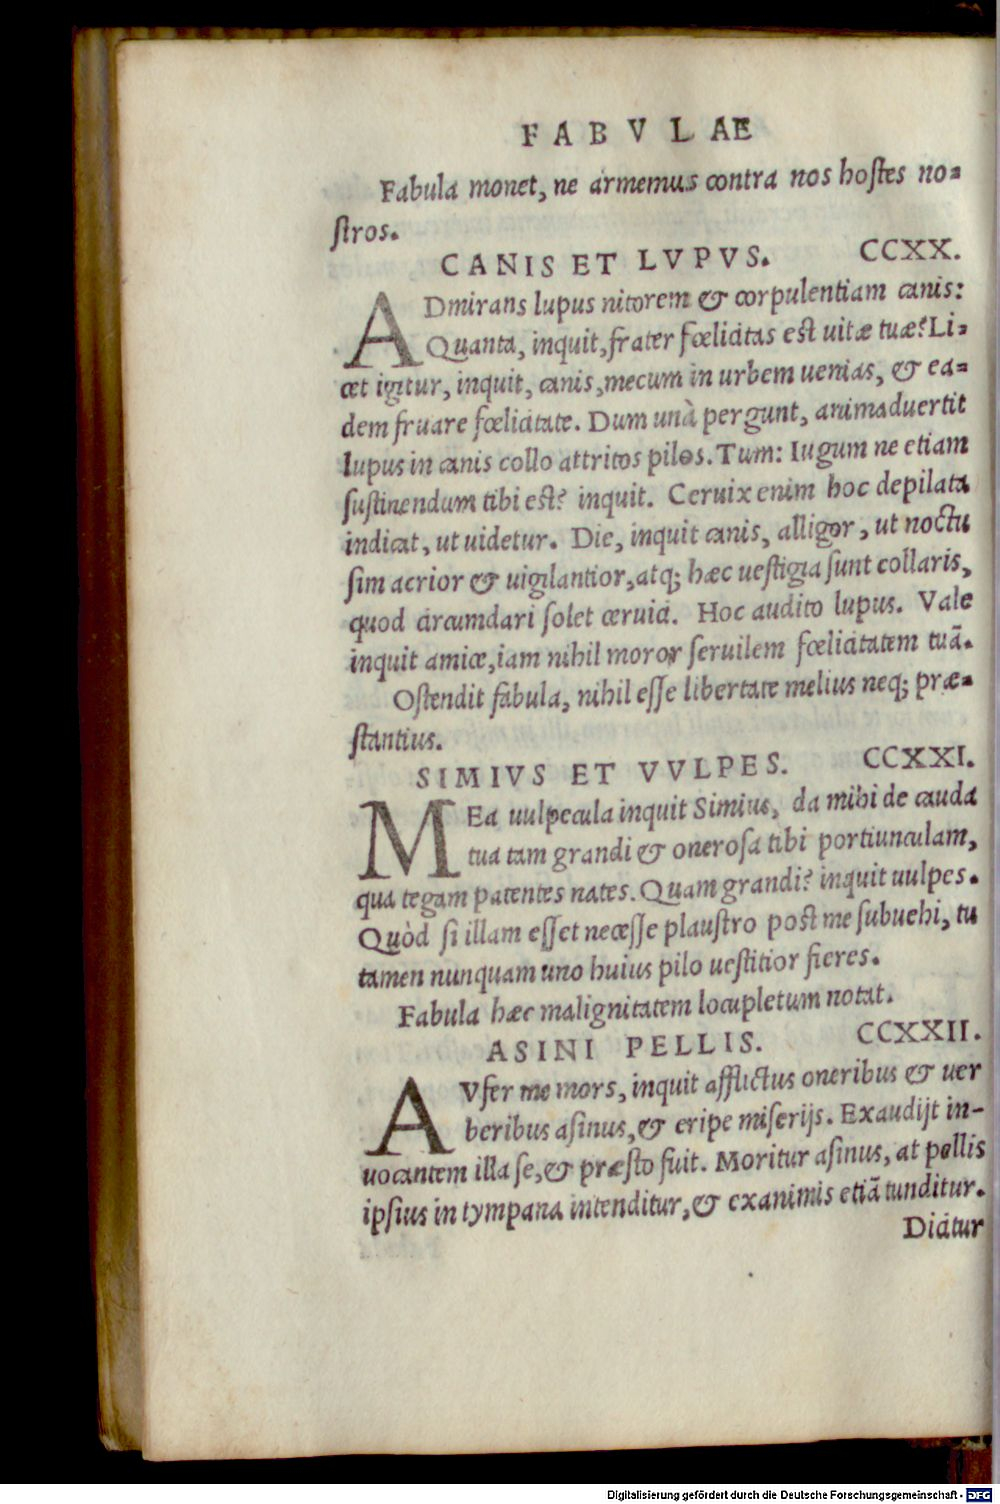 FABVLAE
Fabula monet, ne armemus contra nos hostes no=
stros.
CANIS ET LVPVS. CCXX.
ADmirans lupus nitorem & corpulentiam canis:
Quanta, inquit, frater fœlicitas est uitæ tuæ? Li=
cet igitur, inquit, canis, mecum in urbem uenias, & ea=
dem fruare fœlicitate. Dum unà pergunt, animaduertit
lupus in canis collo attritos pilos. Tum: Iugum ne etiam
sustinendum tibi est? inquit. Ceruix enim hoc depilata
indicat, ut uidetur. Die, inquit canis, alligor, ut noctu
sim acrior & uigilantior, atq; hæc uestigia sunt collaris,
quod circumdari solet ceruici. Hoc audito lupus. Vale
inquit amice, iam nihil moror seruilem fœlicitatem tuã.
Ostendit fabula, nihil esse libertate melius neq; præ=
stantius.
SIMIVS ET VVLPES. CCXXI.
MEa uulpecula inquit Simius, da mihi de cauda
tua tam grandi & onerosa tibi portiunculam,
qua tegam patentes nates. Quam grandi? inquit uulpes.
Quòd si illam esset necesse plaustro post me subuehi, tu
tamen nunquam uno huius pilo uestitior fieres.
Fabula hæc malignitatem locupletum notat.
ASINI PELLIS. CCXXII.
AVfer me mors, inquit afflictus oneribus & uer
beribus asinus, & eripe miserijs. Exaudijt in-
uocantem illa se, & præsto fuit. Moritur asinus, at pellis
ipsius in tympana intenditur, & exanimis etiã tunditur.
Dicitur
Digitalisierung gefördert durch die Deutsche Forschungsgemeinschaft - DFG